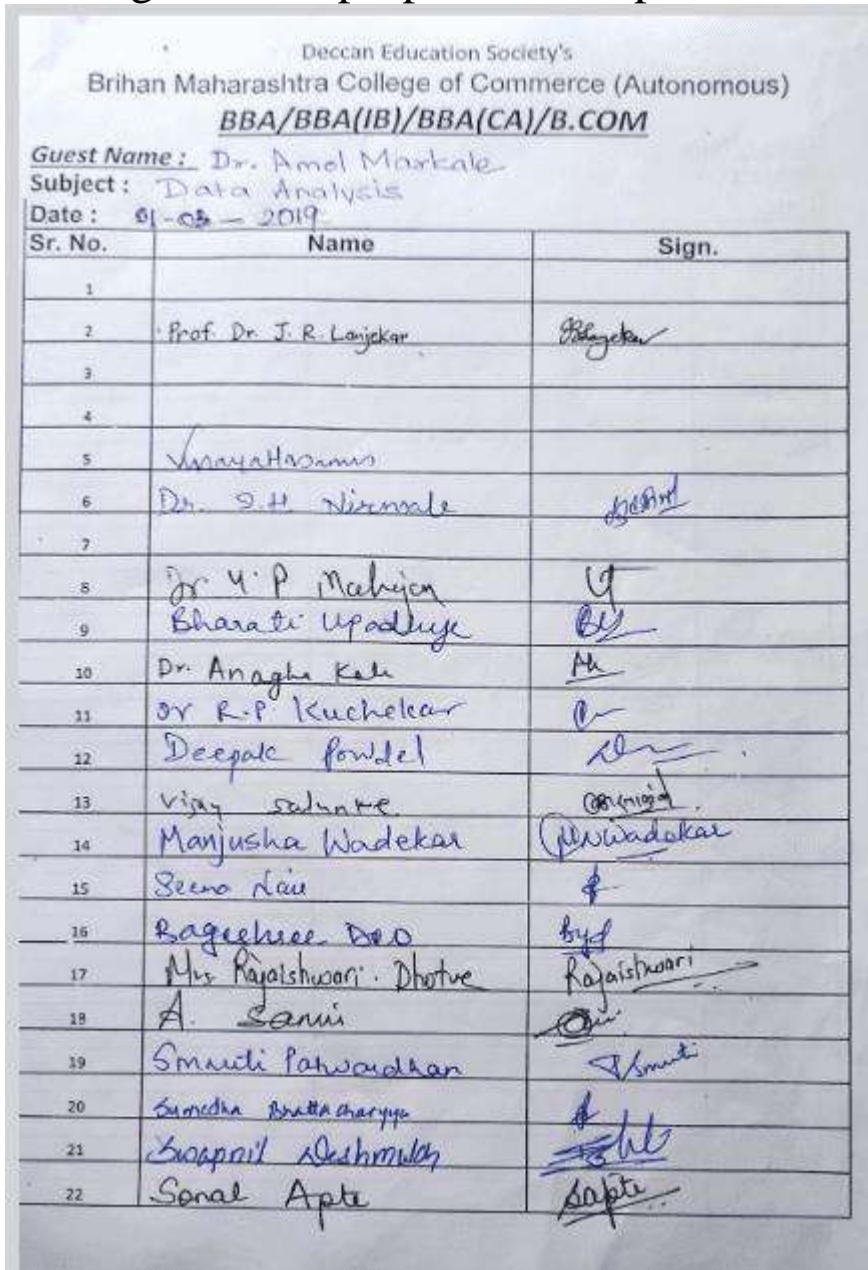 Deccan Education Society's
Brihan Maharashtra College of Commerce (Autonomous)
BBA/BBA(IB)/BBA(CA)/B.COM
Guest Name : Dr. Amol Markale
Subject : Data Analysis
Date : 01-03-2019
Sr. No. Name Sign.
1
2 Prof. Dr. J. R. Lanjekar
3
4
5
6 Dr. Nirmale
7
8 Dr Y. P Mahajan
9 Bharati Upadhye BU
10 Dr. Anagha Kale
11 Dr R.P Kuchekar
12 Deepak Powdel
13 Vijay Salunke
14 Manjusha Wadekar Wadekar
15 Seema Nair
16 Bageshree Deo
17 Mrs Rajaishwari. Dhotve Rajaishwari
18 A.
19 Smruti Patwardhan Smruti
20 Sumedha Bhattacharyya
21 Swapnil Deshmukh
22 Sonal Apte Sapte